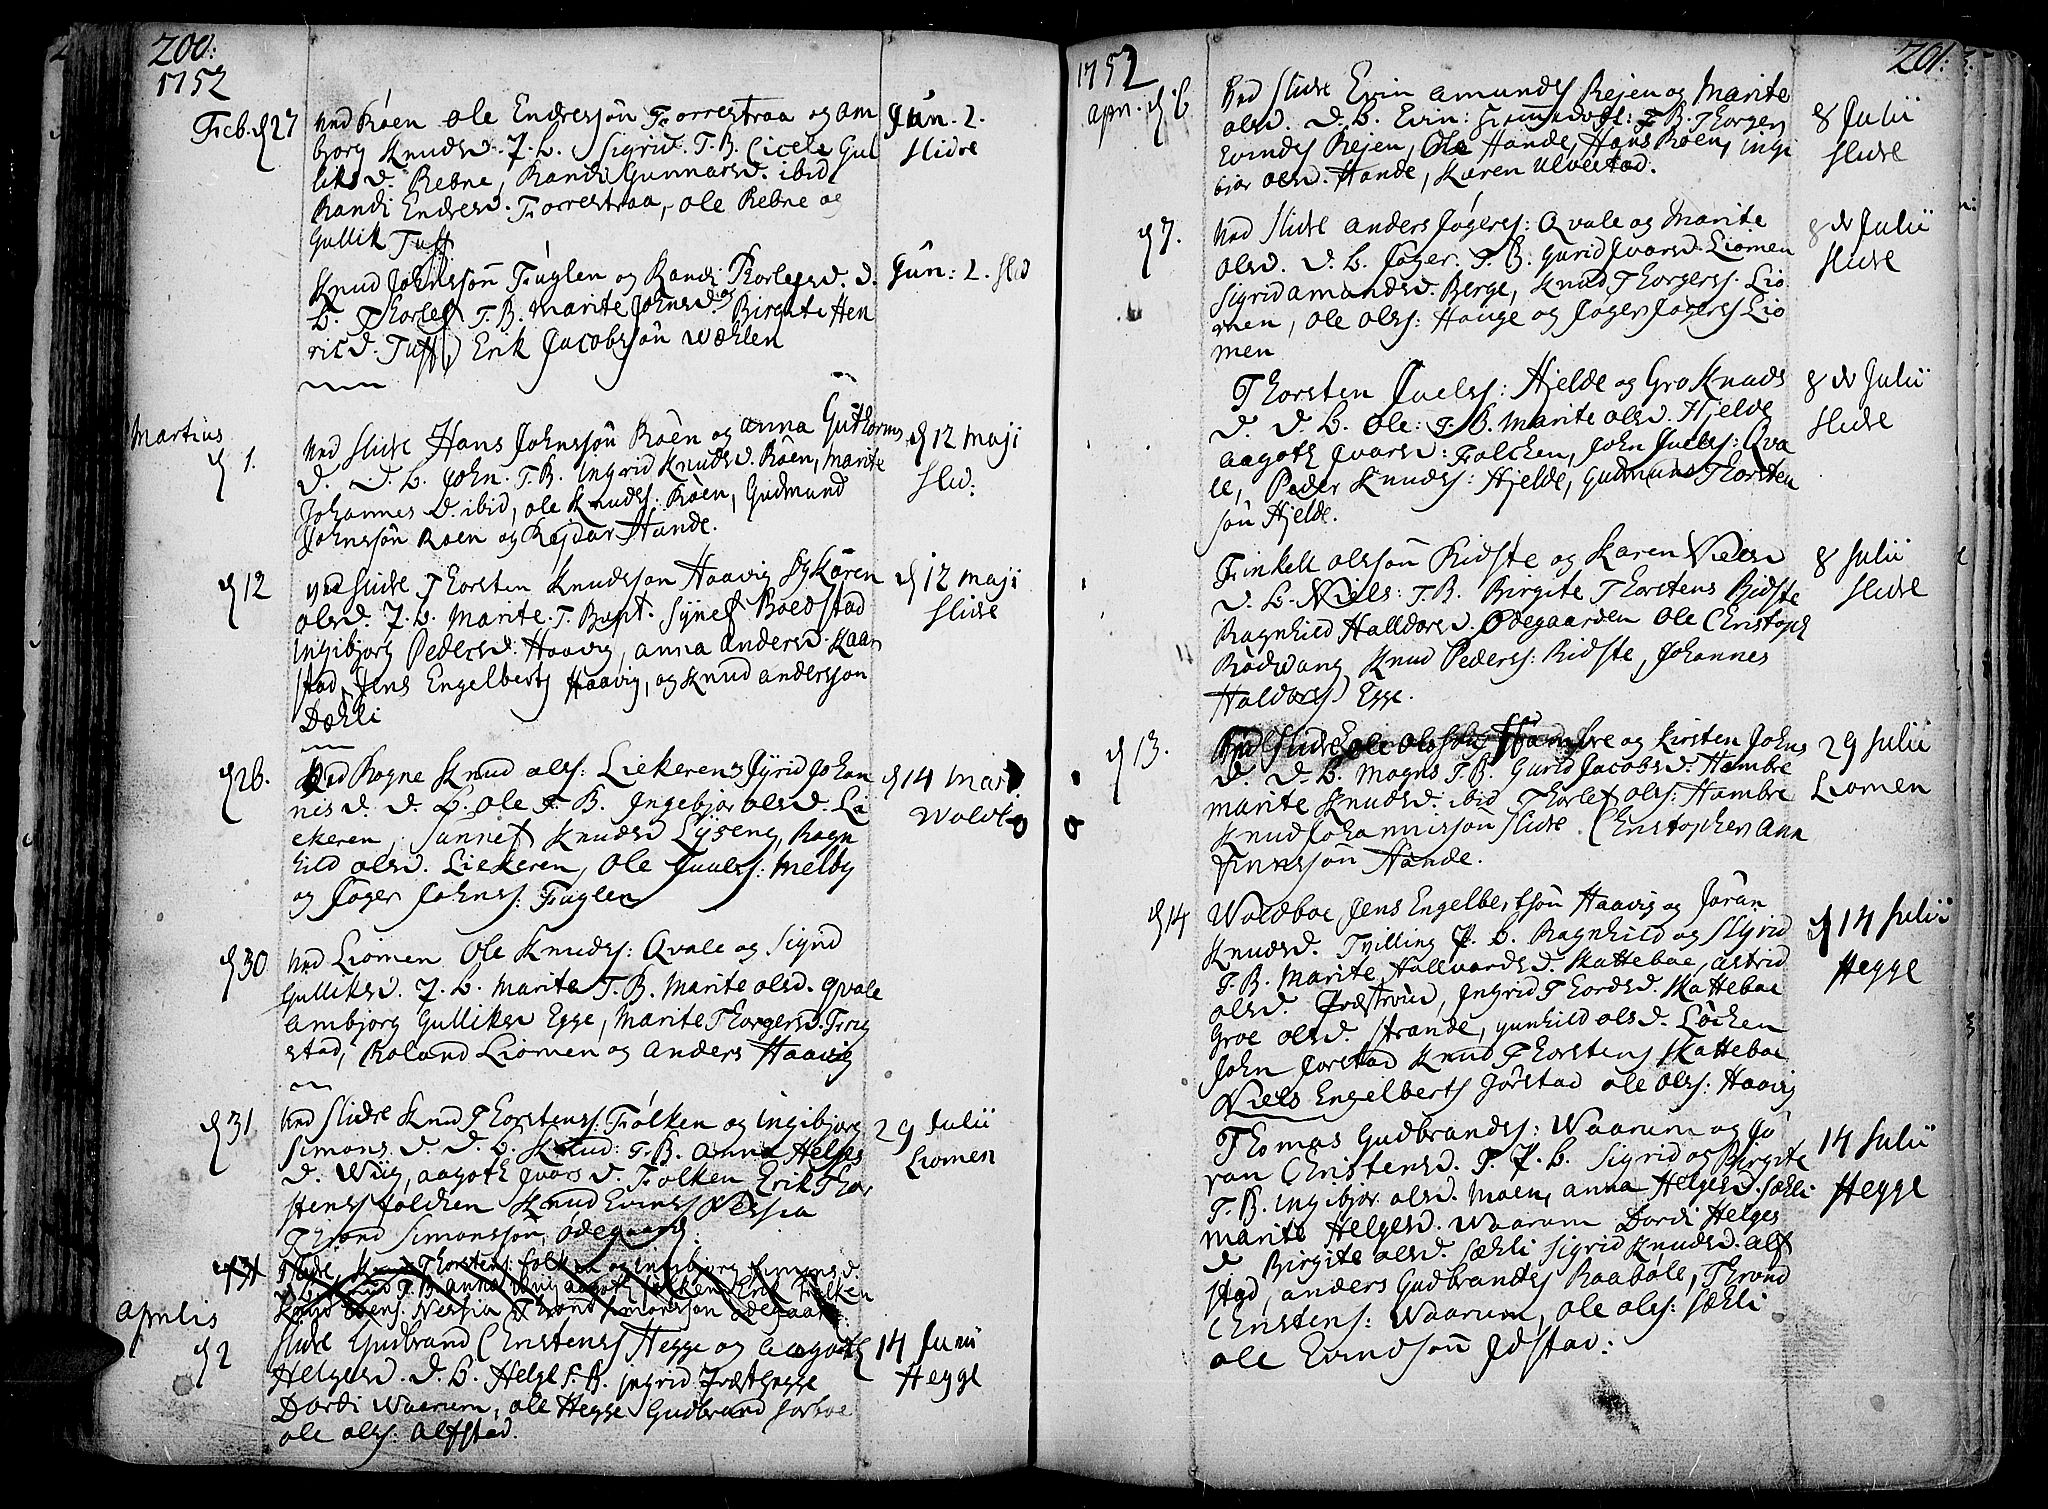 200:
1752
Feb. d 27 Ved Röen Ole Endressön Forrestraa og Am
bjorg Knudsd. J. B. Sigrid. T. B. Cicele Gul
liksd. Rebne, Randi Gunnarsd. ibid
Randi Endresd. Forrestraa, Ole Rebne og
Gullik Tuff
Jun. 2.
Slidre
Knud Johnssön Fuglen og Randi Thorlefsd. D.
B. Thorlef T. B. Marite Johnsd. og Birgite Hen
ricd. Tuff, Erik Jacobssön Wæhlen
Jun: 2. Slid
Martius
d 1. Ved Slidre Hans Johnssön Röen og Anna Guthorms
D. D. B. John. T. B. Ingrid Knudsd. Röen, Marite
Johannes D. ibid, Ole Knuds. Röen, Gudmund
Johnssön Roen og Rejdar Hande.
d 12 Maji
Slid:
d 12 Ved Slidre Thorsten Knudsson Haavig og Karen
Olsd. J. B. Marite. T. Bapt. Synef Boedstad
Ingibjorg Pedersd. Haavig, Anna Andersd. Kaan
stad, Jens Engelberts Haavig, og Knud Andersson
Dæhli
d 12 Maji
Slidre
d 26. Ved Rogne Knud Ols: Liekeren Jyrid Johan
nisd. D. B. Ole T. B. Ingebjor Olsd. Li
ekeren, Sunnef Knudsd Lÿseng, Ragn
hild Olsd. Liekeren, Ole Juuls: Melby
og Joger Johnss: Fuglen
d 14 Maij
Woldb
d 30 Ved Liomen Ole Knuds: Qvale og Sigrid
Gulliksd. J. B. Marite T. B. Marite Olsd. Qvale
Ambjorg Gulliksd Egge, Marite Thorgersd. Frug
stad, Roland Liomen og Anders Haavig
d 31 Ved Slidre Knud Thorstens: Folken og Ingibjorg
Simons D. D. B. Knud: T. B. Anna Helges
D. Wiig, Aagoth Jvars D. Folken Erik Thor
stens Folchen Knud Evens Nessia
Thrond Simonssön Ödegaard.
29 Julii
Liomen
d 31 Slidre Knud Thorstens Folken og Ingibjorg Simonsd.
D. B. Knud T. B. Anna Wiig Aagoth Folken Erik Folken
Knud Evens: Nessia Thrond Simonsson Ödegaard.
Aprilis
d 2 Slidre Gudbrand Christenss Hegge og Aagoth
Helgesd. D. B. Helge T. B. Ingrid Præsthegge
Dordi Waarum, Ole Hegge Gudbrand Sorboe
Ole Ols: Alfstad.
14 Junii
Hegge
1752
201:
Apr. d 6 Ved Slidre Evin Amunds Rejen og Marite
Olsd. D. B. Evin: T. B. Thorger
Evinds Rejen, Ole Hande, Hans Röen, Ingi
bjor Olsd. Hande, Karen Ulvestad.
8 Julii
Slidre
d 7. Ved Slidre Anders Jogers: Qvale og Marite
Olsd. D. B. Joger. T. B. Gurid Jvarsd. Liomen
Sigrid Amundsd. Berge, Knud Thorgers: Lio
men, Ole Ols: Hauge og Joger Jogers Lio
men
8 d Julii
Slidre
Thorsten Juels: Hjelde og Gro Knuds
D. D. B. Ole: T. B. Marite Olsd. Hjelde
Aagoth Jvarsd: Folchen, John Juels: Qva
le, Peder Knuds: Hjelde, Gudmund Thorsten
sön Hjelde.
8 d Julii
Slidre
Finkell Olssön Ridste og Karen Niels
D. B. Niels: T. B. Birgite Thorstens Ridste
Ragnhild Halldorsd. Ödegaarden Ole Christoph
Rödvang Knud Peders: Ridste, Johannes
Haldors Egge.
8 Julii
Slidre
d 13. Ved Slidre Ole Olssön Hambre og Kirsten Johns
D. D. B. Mogns T. B. Gurid Jacobsd. Hambre
Marite Knudsd. ibid Thorlef Ols: Hambre
Knud Johannissön Slidre. Christopher Ann
finnssön Hande.
29 Julii
Liomen
d 14 Woldboe Jens Engelbertsön Haavig og Jöran
Knudsd. Tvilling P. B. Ragnhild og Sigrid
T. B. Marite Hallvordsd. Skatteboe, Astrid
Olsd. Præstrud, Ingrid Thordsd. Skatteboe
Groe Olsd. Strande, Gunhild Olsd. Löcken
John Jorstad Knud Thorstens Skatteboe
Niels Engelberts Jörstad Ole Ols: Haavig
d 14 Julii
Hegge
Thomas Gudbrands: Waarum og Jö
ran Christensd. T. P. B. Sigrid og Birgite
T. B. Ingibjor Olsd. Moen, Anna Helgesd. Sæhli
Marite Helgesd. Waarum Dordi Helges
D Birgite Olsd. Sæhli Sigrid Knudsd. Alf
stad, Anders Gudbrands Raabole, Thrond
Christens: Waarum, Ole Ols: Sæhli
Ole Evindsön Jdstad:
14 Julii
Hegge